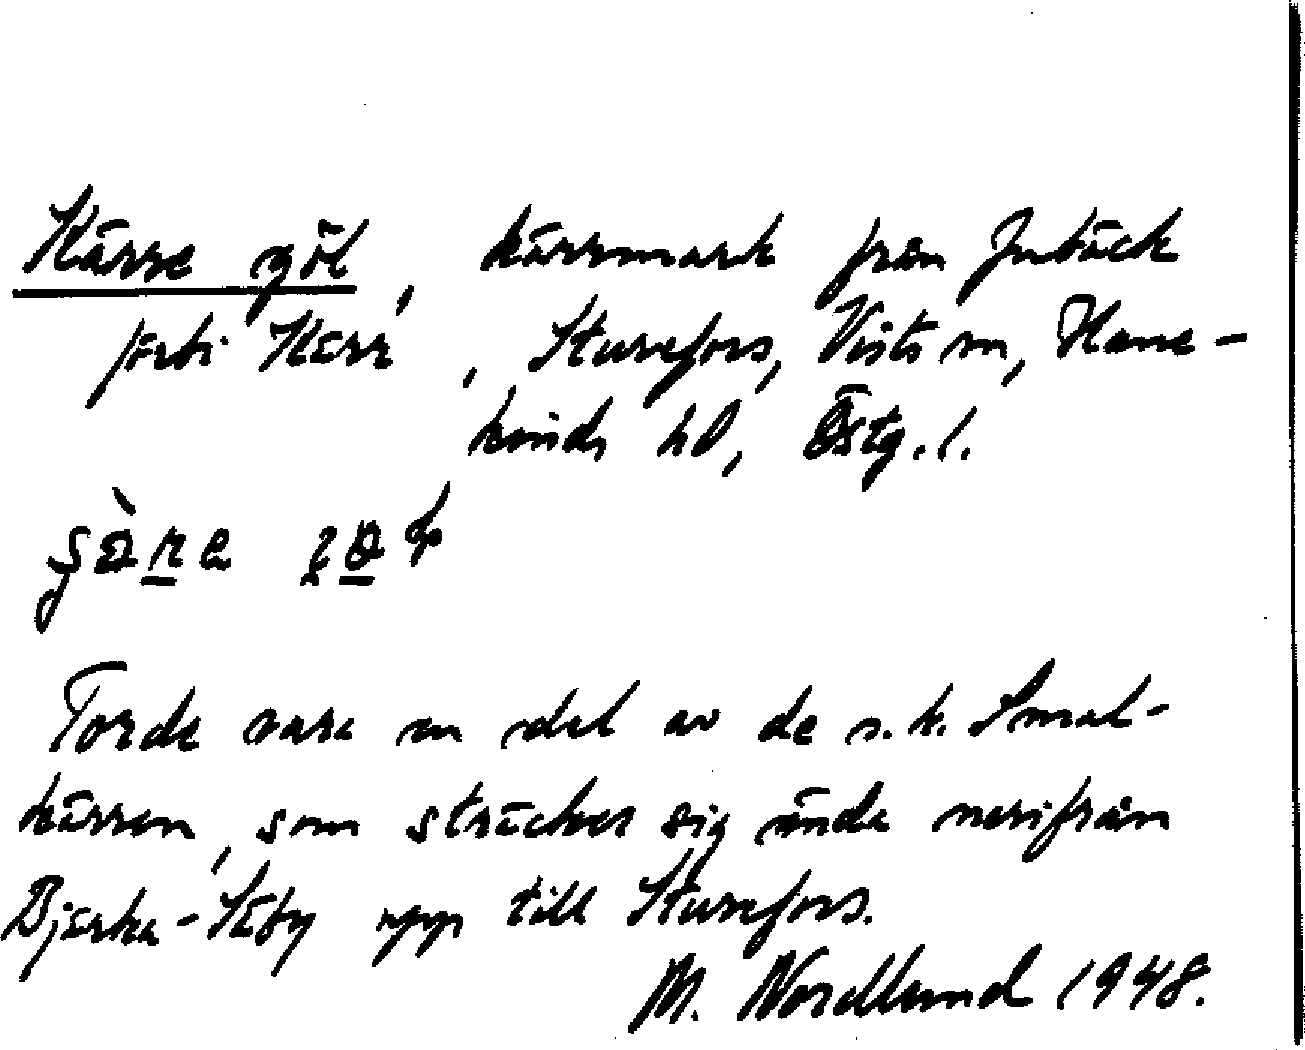 Kärre göl, kärrmark från Inbäck
förbi Kärr, Sturefors, Vists sn, Hane-
kinds hd, Östg. l.
Torde vara en del av de s.k. Smal-
kärren, som sträcker sig ända nerifrån
Bjärka-Säby upp till Sturefors.
M. Nordlund 1948.